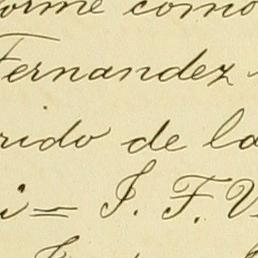 orme como
Fernandez
rido de la
i= J. F. V